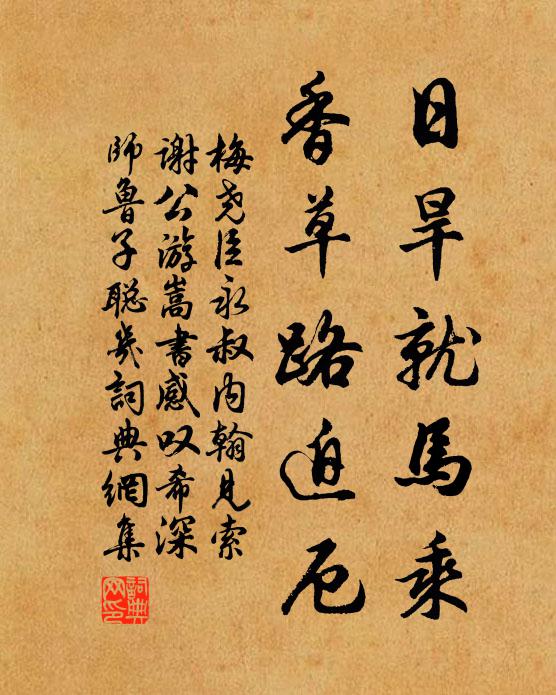 日旱就馬乘
香草路迫厄
梅堯臣永叔内翰見索
謝公游嵩書感叹希深
師魯子聪㡬詞典網集
詞典
网印